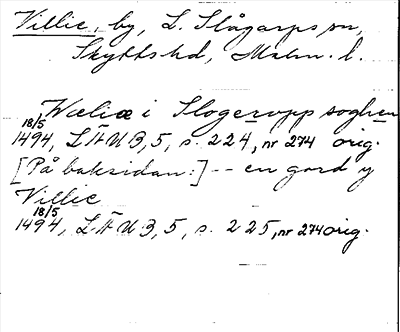 Villie, by, L. Slågarps sn,
Skytts hd, Malm. l.
Wæliæ i Slogeropp soghen
18/5
1494, LÄUB, 5, s. 224, nr 274 orig.
[På baksidan:] -- en gord y
Villie
18/5
1494, LÄUB, 5, s. 225, nr 274 orig.